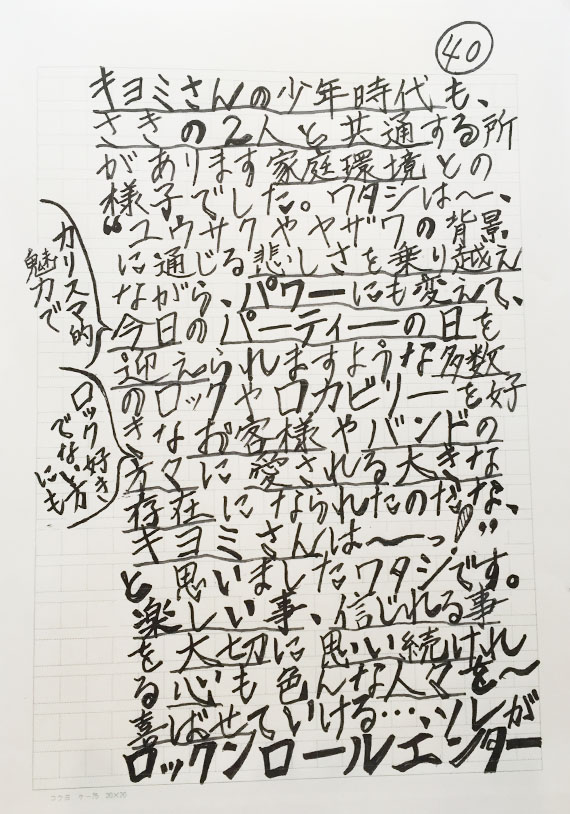 40
キヨミさんの少年時代も、
さきの2人と共通する所
があります家庭環境との
様子でした。ワタシは〜、
“ユウサクやヤザワの背景
に通じる悲しさを乗り越え
ながら、パワーにも変えて、
今日のパーティーの日を
迎えられますような多数
のロックやロカビリーを好
きなお客様やバンドの
方々に愛される大きな
存在になられたのだな、
キヨミさんは〜っ!”
と思いましたワタシです。
楽しい事、信じれる事
を大切に思い続けれ
る心も色んな人々を〜
喜ばせていける…、ソレが
ロックンロールエンター
カリスマ的
魅力で
ロック好き
でない方
にも
コクヨ ケー75 20×20